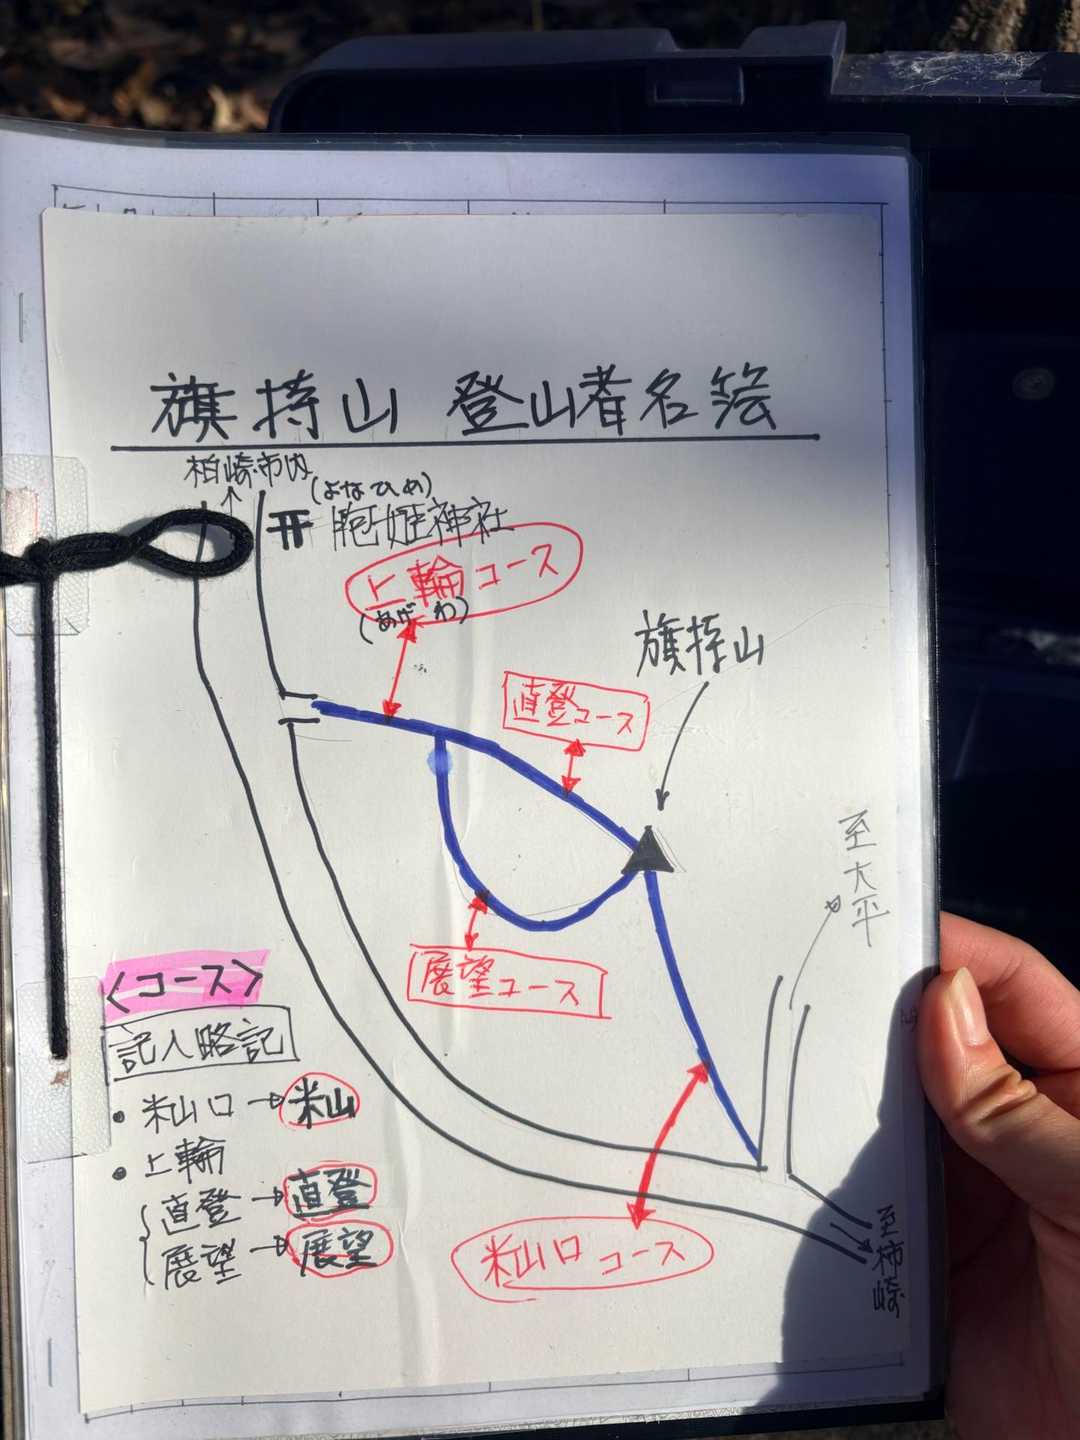 旗持山 登山者名簿
柏崎市内
(よなひめ)
胞姫神社
上輪コース
(あげわ)
旗持山
直登コース
至大平
展望コース
<コース>
記入略記
・米山口→米山
・上輪
直登→直登
展望→展望
米山口コース
至柿崎